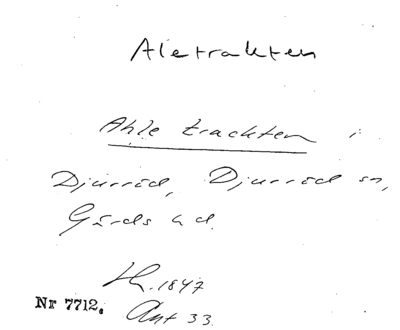 Aletrakten
Ahle trackten i
Djurröd, Djurröd sn,
Gärds hd.
Hh. 1847
Nr 7712. Ant 33.